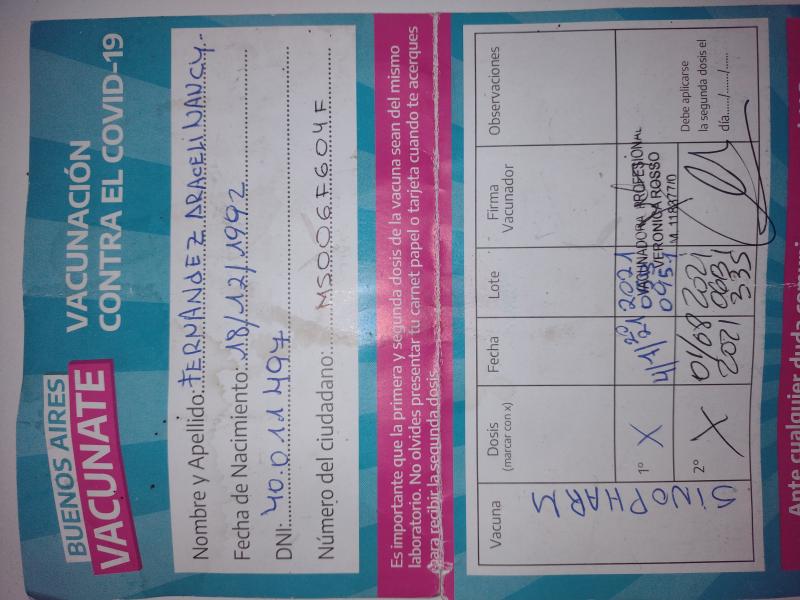 BUENOS AIRES
VACUNATE
VACUNACIÓN
CONTRA EL COVID-19
Nombre y Apellido: FERNANDEZ ARACELI NANCY.
Fecha de Nacimiento: 18/12/1992
DNI: 40.011.497
Número del ciudadano: MS006F604F
Es importante que la primera y segunda dosis de la vacuna sean del mismo
laboratorio. No olvides presentar tu carnet papel o tarjeta cuando te acerques
para recibir la segunda dosis.
Vacuna Dosis Fecha Lote Firma Observaciones
(marcar con x) Vacunador
SINOPHARM
1º X 2021
VACUNADORA PROFESIONAL
VERONICA ROSSO
M 1188377/0
2º X 01/08 2021
2021 0631
335
Debe aplicarse
la segunda dosis el
día....../....../......
Ante cualquier duda